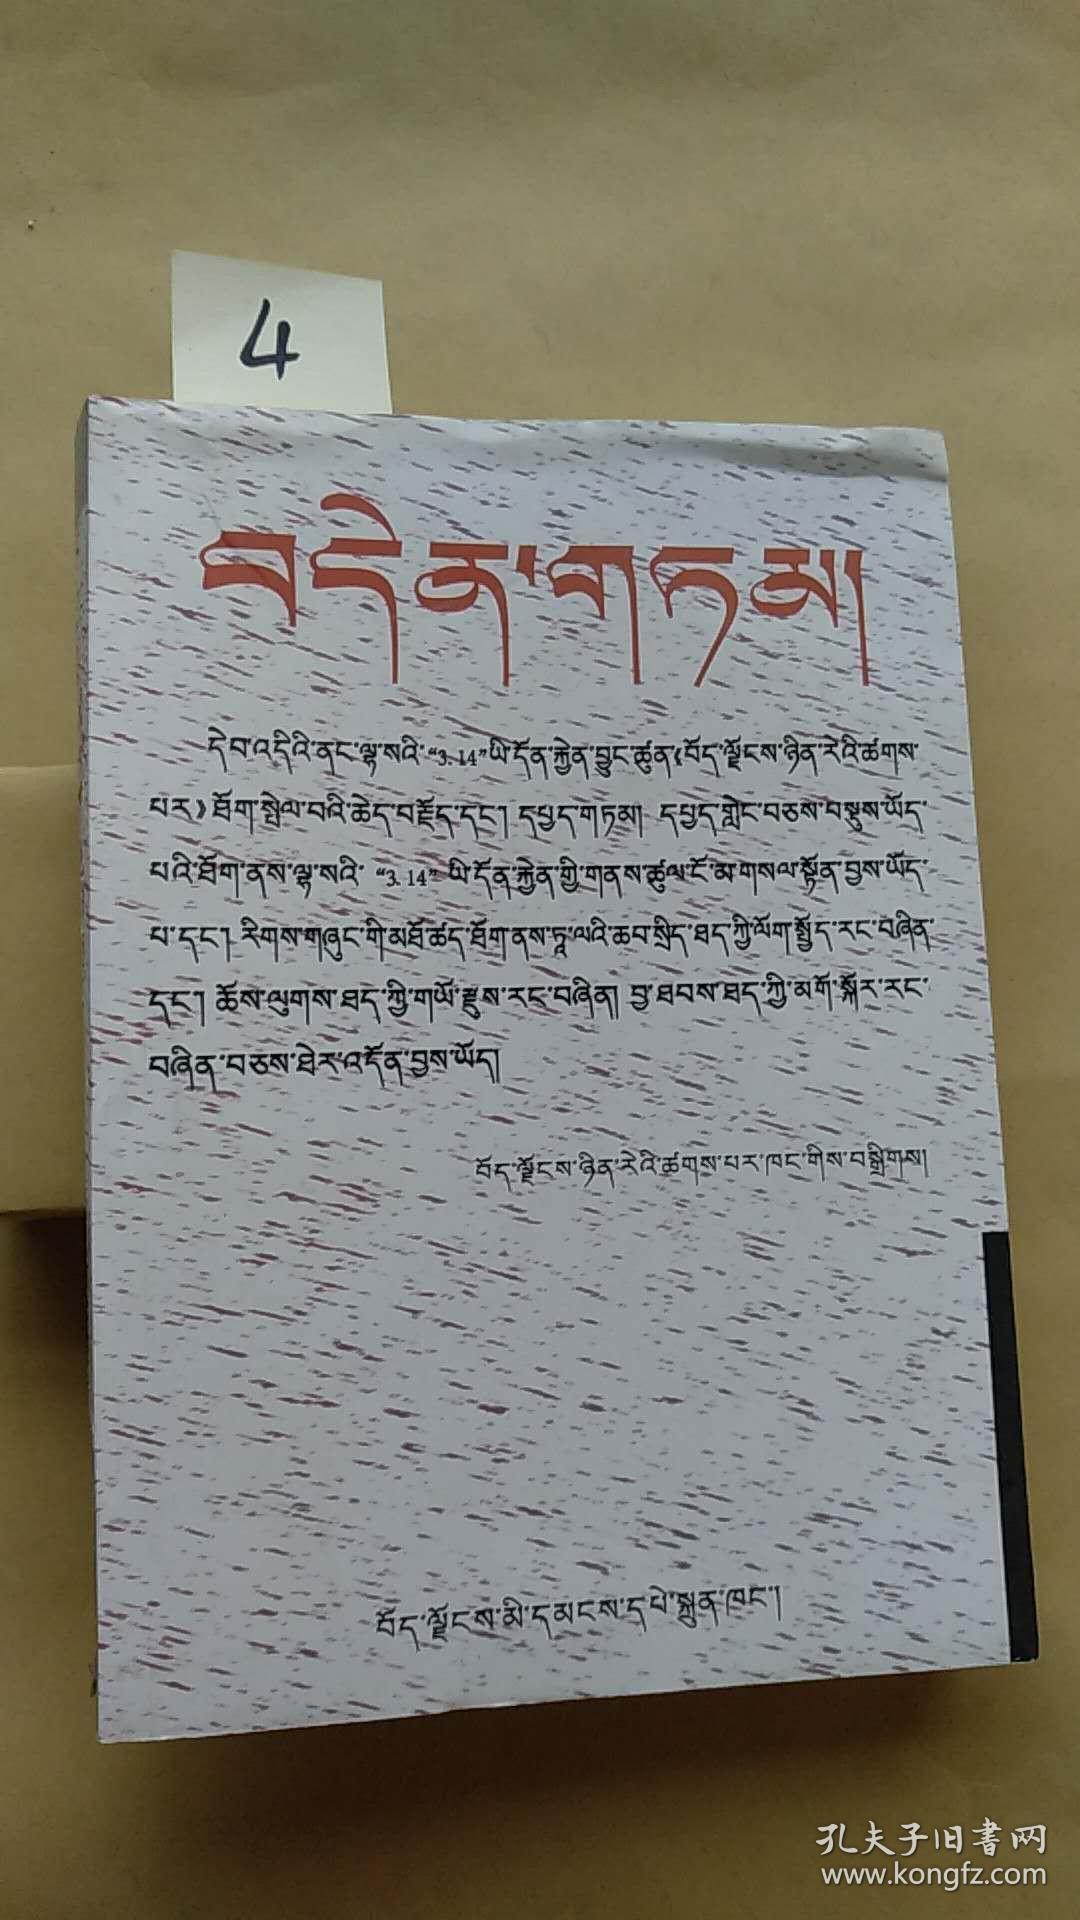 4
བདེན་གཏམ།
དེབ་འདིའི་ནང་ལྷ་སའི་“3.14”ཡི་དོན་རྐྱེན་བྱུང་ཚུན《བོད་ལྗོངས་ཉིན་རེའི་ཚགས་
པར》ཐོག་སྤེལ་བའི་ཆེད་བརྗོད་དང་། དཔྱད་གཏམ། དཔྱད་གླེང་བཅས་བསྡུས་ཡོད་
པའི་ཐོག་ནས་ལྷ་སའི་ “3.14” ཡི་དོན་རྐྱེན་གྱི་གནས་ཚུལ་ངོ་མ་གསལ་སྟོན་བྱས་ཡོད་
པ་དང་། རིགས་གཞུང་གི་མཐོ་ཚད་ཐོག་ནས་ཏཱ་ལའི་ཆབ་སྲིད་ཐད་ཀྱི་ལོག་སྤྱོད་རང་བཞིན་
དང་། ཆོས་ལུགས་ཐད་ཀྱི་གཡོ་རྫུས་རང་བཞིན། བྱ་ཐབས་ཐད་ཀྱི་མགོ་སྐོར་རང་
བཞིན་བཅས་ཐེར་འདོན་བྱས་ཡོད།
བོད་ལྗོངས་ཉིན་རེའི་ཚགས་པར་ཁང་གིས་བསྒྲིགས།
བོད་ལྗོངས་མི་དམངས་དཔེ་སྐྲུན་ཁང་།
孔夫子旧书网
www.kongfz.com